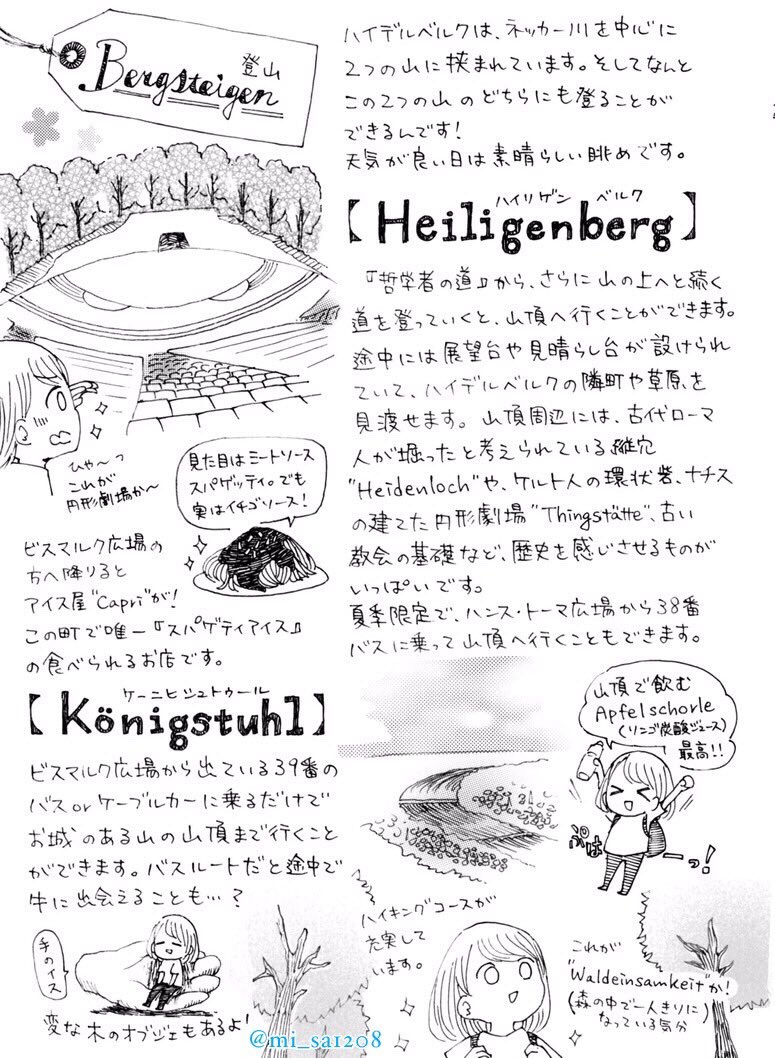 Bergsteigen
登山
ハイデルベルクは、ネッカー川を中心に
2つの山に挟まれています。そしてなんと
この2つの山のどちらにも登ることが
できるんです!
天気が良い日は素晴らしい眺めです。
ハイリゲン ベルク
【Heiligenberg】
『哲学者の道』から、さらに山の上へと続く
道を登っていくと、山頂へ行くことができます。
途中には展望台や見晴らし台が設けられ
ていて、ハイデルベルクの隣町や草原を
見渡せます。山頂周辺には、古代ローマ
人が掘ったと考えられている縦穴
"Heidenloch"や、ケルト人の環状砦、ナチス
の建てた円形劇場"Thingstätte"、古い
教会の基礎など、歴史を感じさせるものが
いっぱいです。
夏季限定で、ハンス・トーマ広場から38番
バスに乗って山頂へ行くこともできます。
ひゃ〜っ
これが
円形劇場か〜
見た目はミートソース
スパゲッティ。でも
実はイチゴソース!
ビスマルク広場の
方へ降りると
アイス屋"Capri"が!
この町で唯一『スパゲティアイス』
の食べられるお店です。
ケーニヒシュトゥール
【Königstuhl】
ビスマルク広場から出ている39番の
バスorケーブルカーに乗るだけで
お城のある山の山頂まで行くこと
ができます。バスルートだと途中で
牛に出会えることも…?
山頂で飲む
Apfelschorle
(リンゴ炭酸ジュース)
最高!!
ぷはーっ!
手のイス
変な木のオブジェもあるよ!
ハイキングコースが
充実して
います。
これが
"Waldeinsamkeit"か!
(森の中で一人きりに
なっている気分)
@mi_sa1208